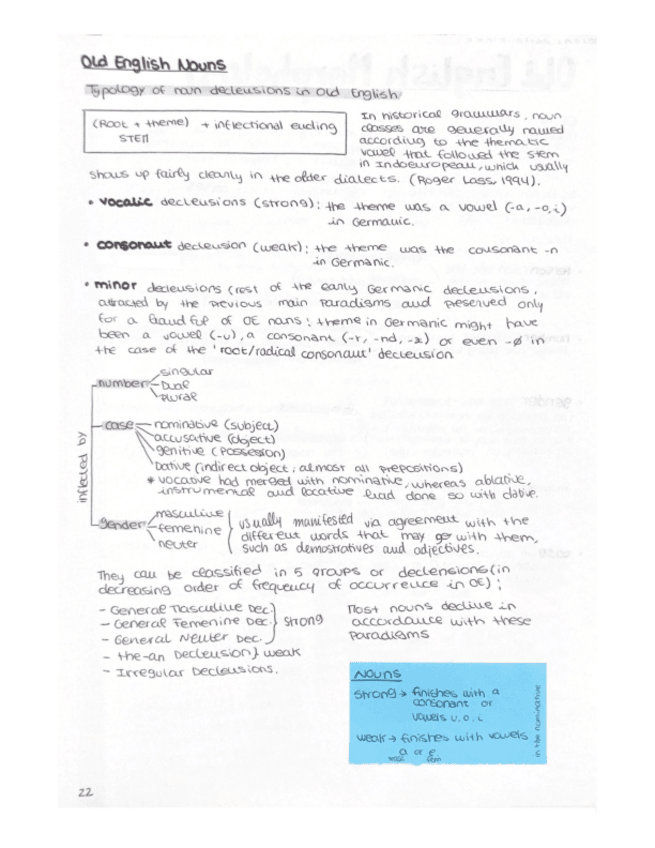 Old English Nouns
Typology of noun declensions in Old English
(Root + theme) + inflectional ending
STEM
In historical grammars, noun
classes are generally named
according to the thematic
vowel that followed the stem
in Indoeuropean, which usually
shows up fairly cleanly in the older dialects. (Roger Lass, 1994).
• vocalic declensions (strong): the theme was a vowel (-a, -o, i)
in Germanic.
• consonant declension (weak): the theme was the consonant -n
in Germanic.
• minor declensions (rest of the early Germanic declensions,
attracted by the previous main paradigms and preserved only
for a handful of OE nouns: theme in Germanic might have
been a vowel (-u), a consonant (-r, -nd, -z) or even -ø in
the case of the 'root/radical consonant' declension
inflected by
number
singular
Dual
Plural
case
nominative (subject)
accusative (object)
genitive (possession)
Dative (indirect object, almost all prepositions)
* vocative had merged with nominative, whereas ablative,
instrumental and locative had done so with dative.
gender
masculine
femenine
neuter
usually manifested via agreement with the
different words that may go with them,
such as demostratives and adjectives.
They can be classified in 5 groups or declensions (in
decreasing order of frequency of occurrence in OE):
- General Masculine Dec.
- General Femenine Dec. } strong
- General Neuter Dec.
- the-an Declension } weak
- Irregular Declensions.
Most nouns decline in
accordance with these
Paradigms
NOUNS
strong → finishes with a
consonant or
vowels u, o, i
weak → finishes with vowels
a or e
masc fem
in the nominative
22